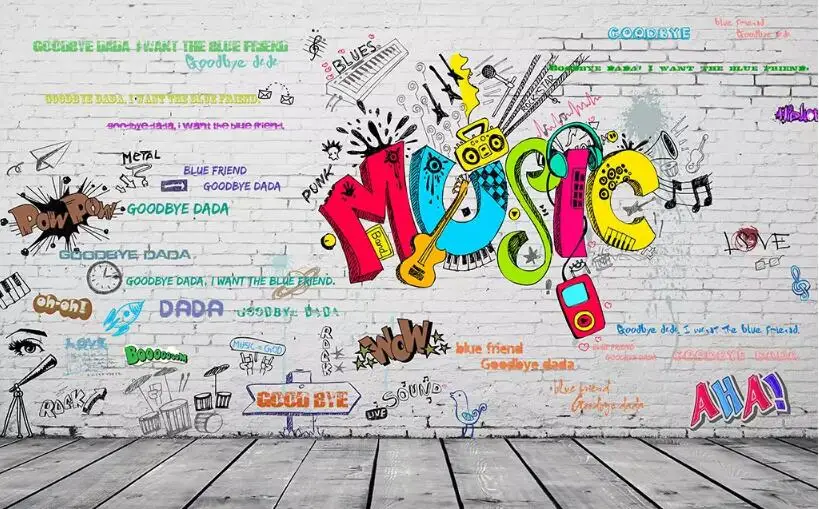 blue friend
Goodbye dada
GOODBYE
GOODBYE DADA I WANT THE BLUE FRIEND
Goodbye dada
BLUES
GOODBYE DADA! I WANT THE BLUE FRIEND.
ROCKSTAR
GOODBYE DADA, I WANT THE BLUE FRIEND.
goodbye dada, i want the blue friend.
METAL
PUNK
BLUE FRIEND
GOODBYE DADA
MUSIC
Band
POW POW
GOODBYE DADA
LOVE
GOODBYE DADA
GOODBYE DADA, I WANT THE BLUE FRIEND.
oh-oh!
DADA
GOODBYE DADA
Goodbye dada, I want the blue friend.
LOVE
MUSIC = GOD
WOW
blue friend
Goodbye dada
BLUE FRIEND
GOODBYE DADA
GOODBYE DADA
ROCK
GOOD BYE
LIVE
SOUND
blue friend
Goodbye dada
AHA!